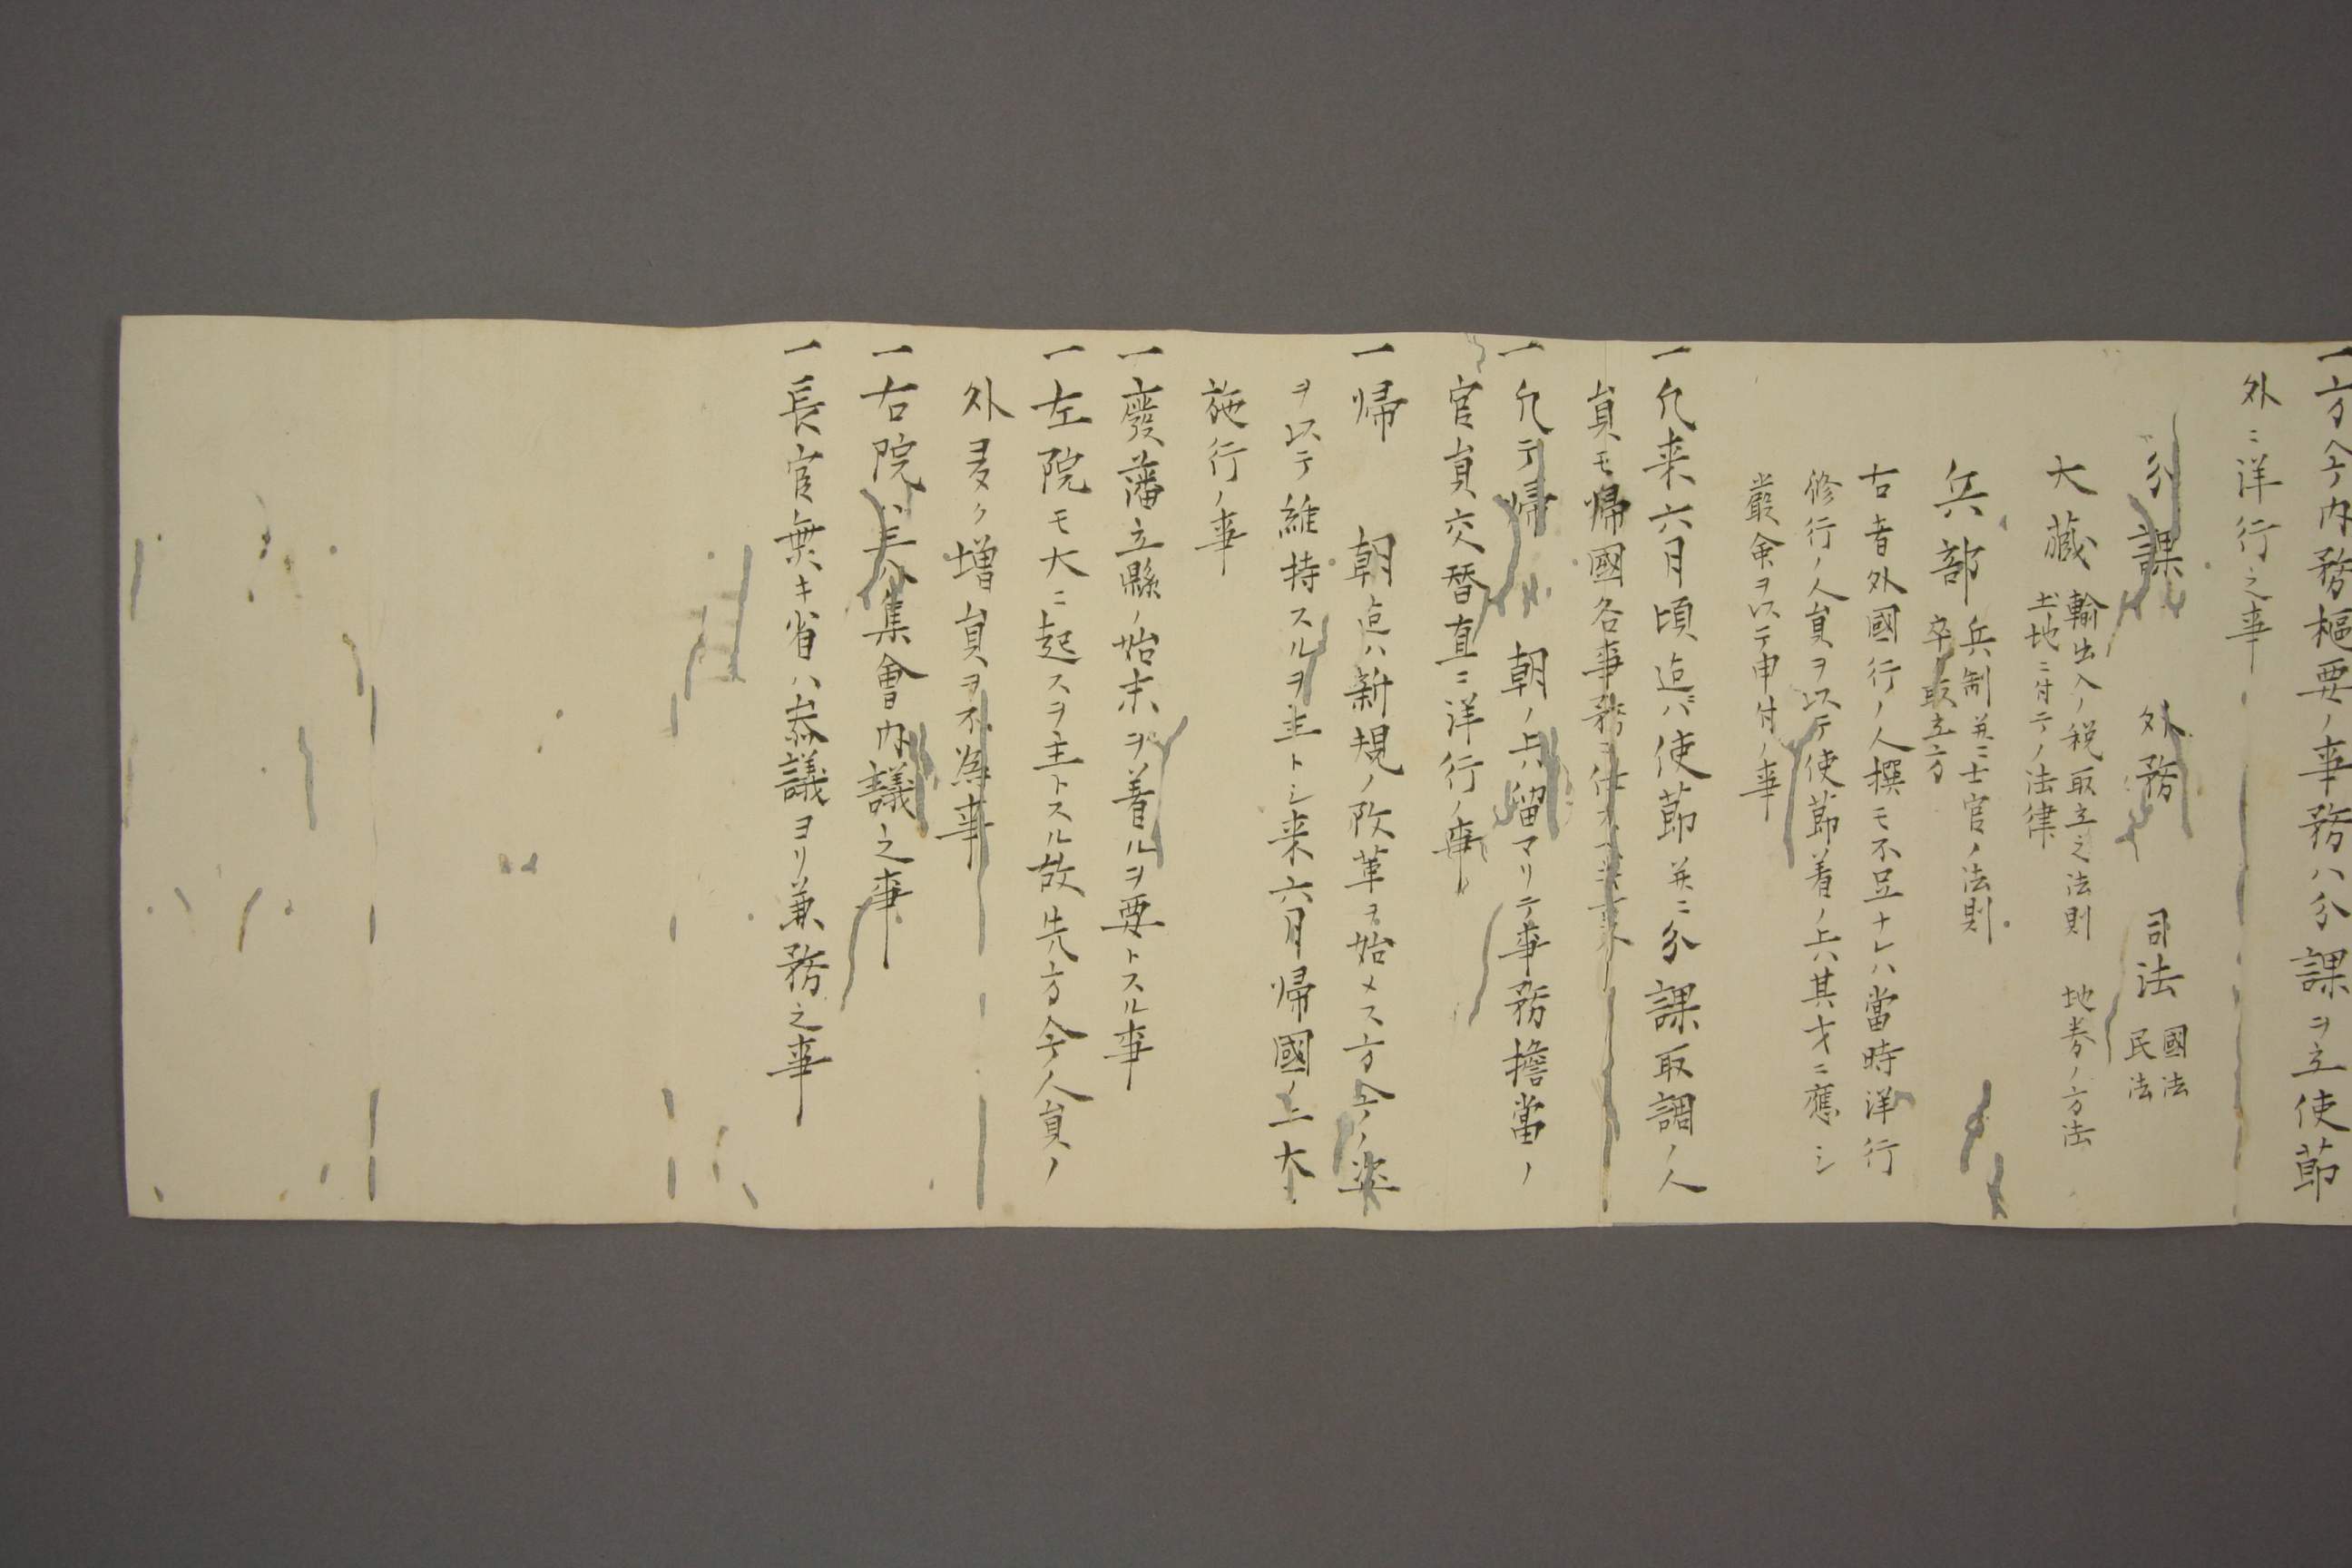 一方今内務樞要ノ事務ハ分課ヲ立使節
外ニ洋行之事
分課 外務 司法 國法 民法
大藏 輸出入ノ税取立之法則 地券ノ方法
土地ニ付テノ法律
兵部 兵制并ニ士官ノ法則
卒取立方
右者外國行ノ人撰モ不足ナレハ當時洋行
修行ノ人員ヲ以テ使節着ノ上ハ其才ニ應シ
嚴命ヲ以テ申付ノ事
一凡来六月頃迄ハ使節并ニ分課取調ノ人
員モ帰國各事務
一凡テ帰 朝ノ上ハ留マリテ事務擔當ノ
官員交替直ニ洋行ノ事
一帰 朝迄ハ新規ノ改革ヲ始メス方今ノ姿
ヲ以テ維持スルヲ主トシ来六月帰國ノ上大
施行ノ事
一廢藩立縣ノ始末ヲ着ルヲ要トスル事
一左院モ大ニ起スヲ主トスル故先方今ノ人員ノ
外多ク増員ヲ不為事
一右院ハ集會内議之事
一長官無キ省ハ参議ヨリ兼務之事